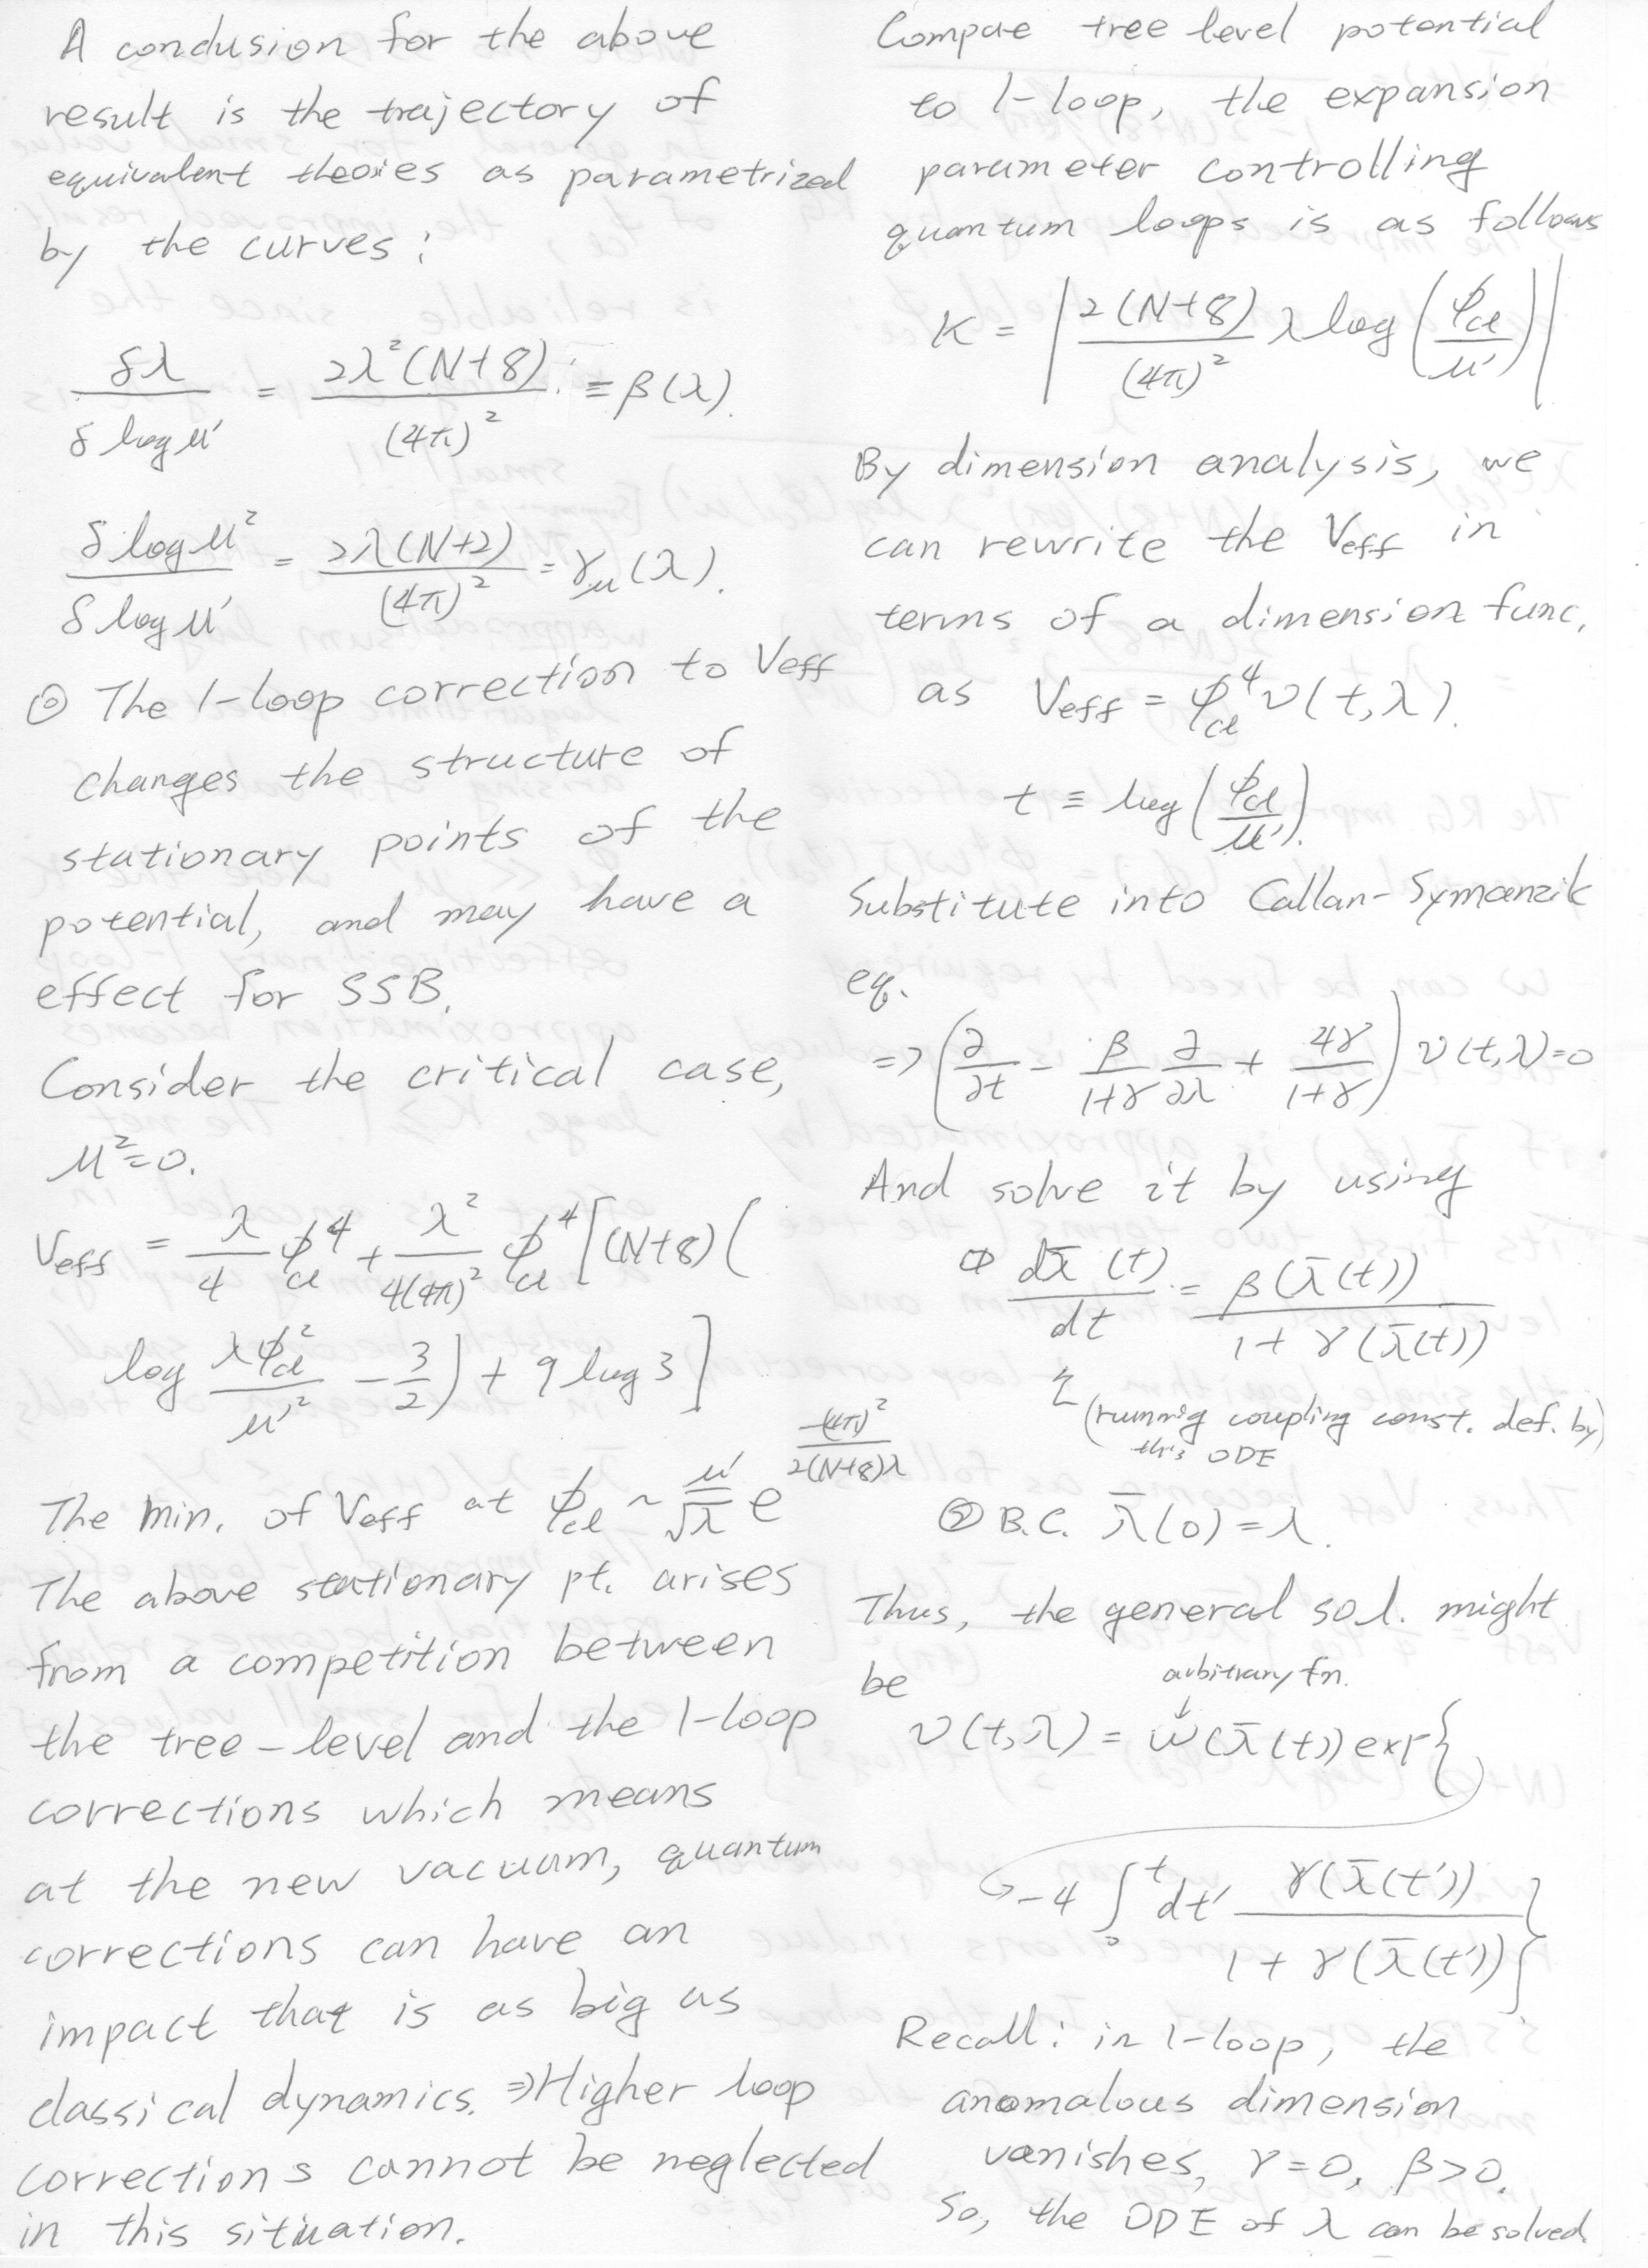 A conclusion for the above
result is the trajectory of
equivalent theories as parametrized
by the curves:
δλ / δ log μ' = 2λ²(N+8) / (4π)² ≡ β(λ).
δ log μ² / δ log μ' = 2λ(N+2) / (4π)² = γ_μ(λ).
⊙ The 1-loop correction to Veff
changes the structure of
stationary points of the
potential, and may have a
effect for SSB.
Consider the critical case,
μ²=0.
Veff = λ/4 φ_cl^4 + λ²/4(4π)² φ_cl^4 [(N+8)(
log λφ_cl²/μ'² - 3/2) + 9 log 3]
The min. of Veff at φ_cl ~ μ'/√λ e^{-(4π)²/2(N+8)λ}
The above stationary pt. arises
from a competition between
the tree-level and the 1-loop
corrections which means
at the new vacuum, quantum
corrections can have an
impact that is as big as
classical dynamics. ⇒Higher loop
corrections cannot be neglected
in this situation.
Compare tree level potential
to 1-loop, the expansion
parameter controlling
quantum loops is as follows
K = | 2(N+8)/(4π)² λ log (φ_cl/μ') |
By dimension analysis, we
can rewrite the Veff in
terms of a dimension func.
as Veff = φ_cl^4 v(t,λ).
t ≡ log(φ_cl/μ').
Substitute into Callan-Symanzik
eq.
=> (∂/∂t - β/1+γ ∂/∂λ + 4γ/1+γ) v(t,λ)=0
And solve it by using
① dλ̄(t)/dt = β(λ̄(t)) / 1+γ(λ̄(t))
(running coupling const. def. by)
this ODE
② B.C. λ̄(0)=λ.
Thus, the general sol. might
be
arbitrary fn.
↓
v(t,λ) = w(λ̄(t)) exp{
-4 ∫₀^t dt' γ(λ̄(t')) / 1+γ(λ̄(t')) }
Recall: in 1-loop, the
anomalous dimension
vanishes, γ=0, β>0.
So, the ODE of λ can be solved.